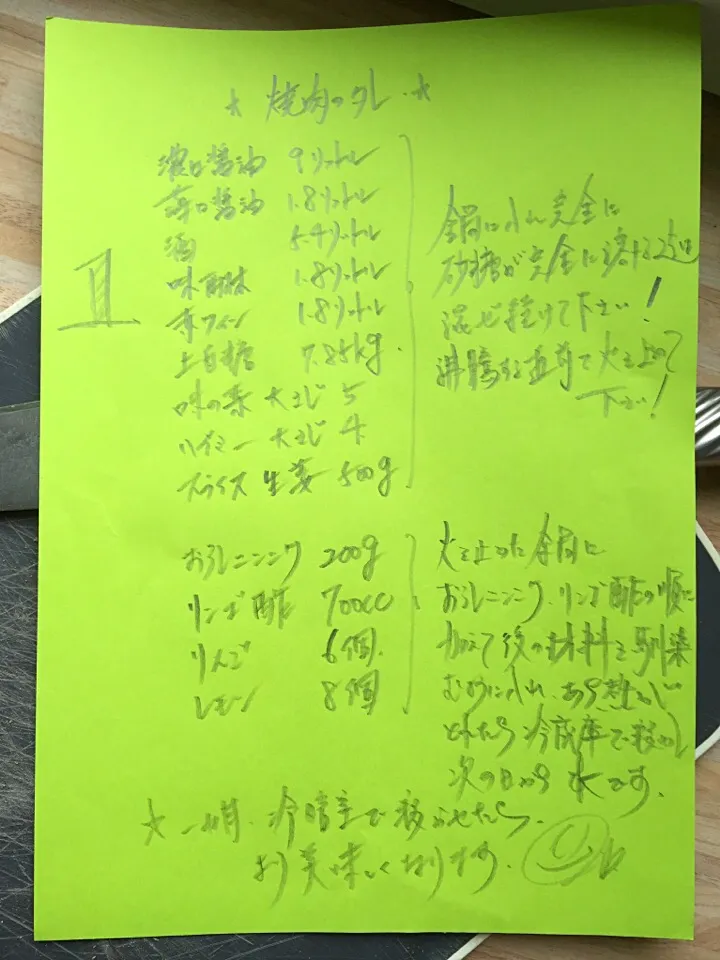 ★ 焼肉のタレ ★
濃口醤油 9リットル
薄口醤油 1.8リットル
酒 5.4リットル
味醂 1.8リットル
赤ワイン 1.8リットル
上白糖 7.85kg
味の素 大さじ 5
ハイミー 大さじ 4
スライス 生姜 500g
全鍋に入れ 完全に
砂糖が完全に溶ける迄
混ぜ続けて下さい!
沸騰する直前で火を止めて
下さい!
おろしニンニク 200g
リンゴ酢 700cc
りんご 6個
レモン 8個
火を止めた 鍋に
おろしニンニク、リンゴ酢の順に
加えて後の材料を馴染
むように入れ、あら熱が
とれたら冷蔵庫で寝かし
次の日から OKです。
★ 一ヶ月、冷暗室で寝かせたら、
より美味しくなります。